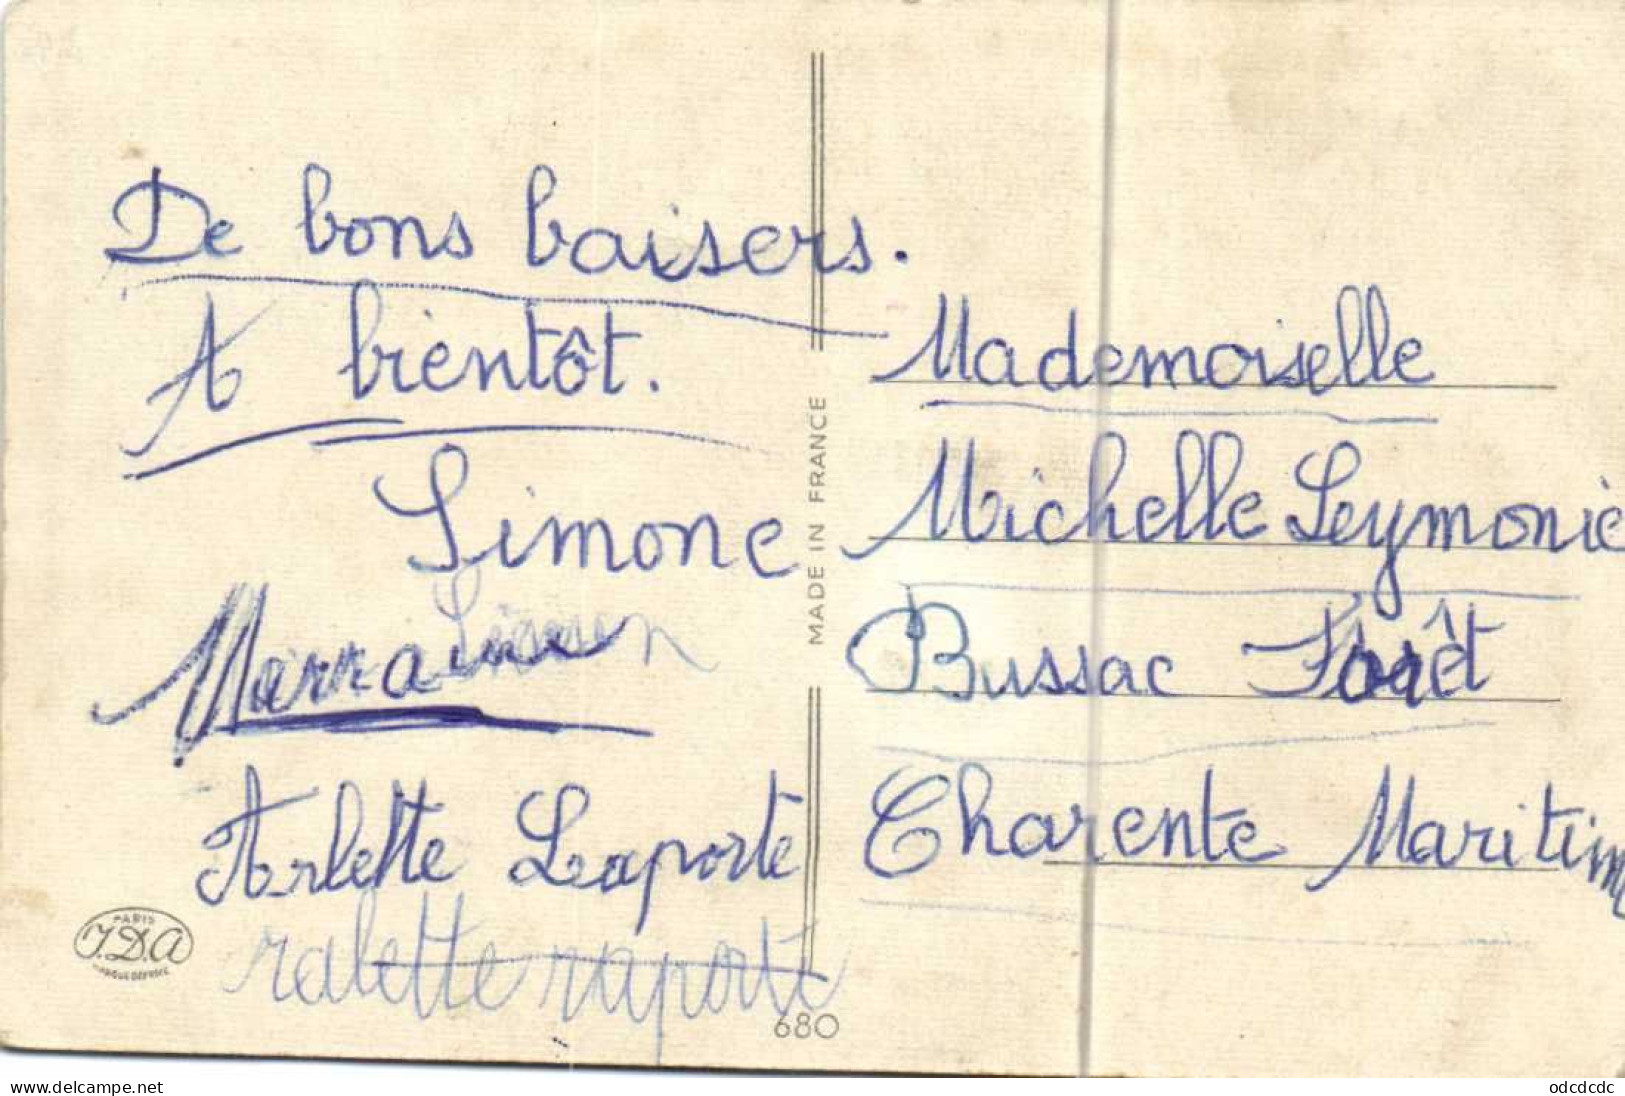 De bons baisers.
A bientôt.
Simone
Marraine
Arlette Laporte
ralette raporte
PARIS
J.D.A
MARQUE DÉPOSÉE
MADE IN FRANCE
680
Mademoiselle
Michelle Leymonie
Bussac Forêt
Charente Maritim
www.delcampe.net
odcdcdc